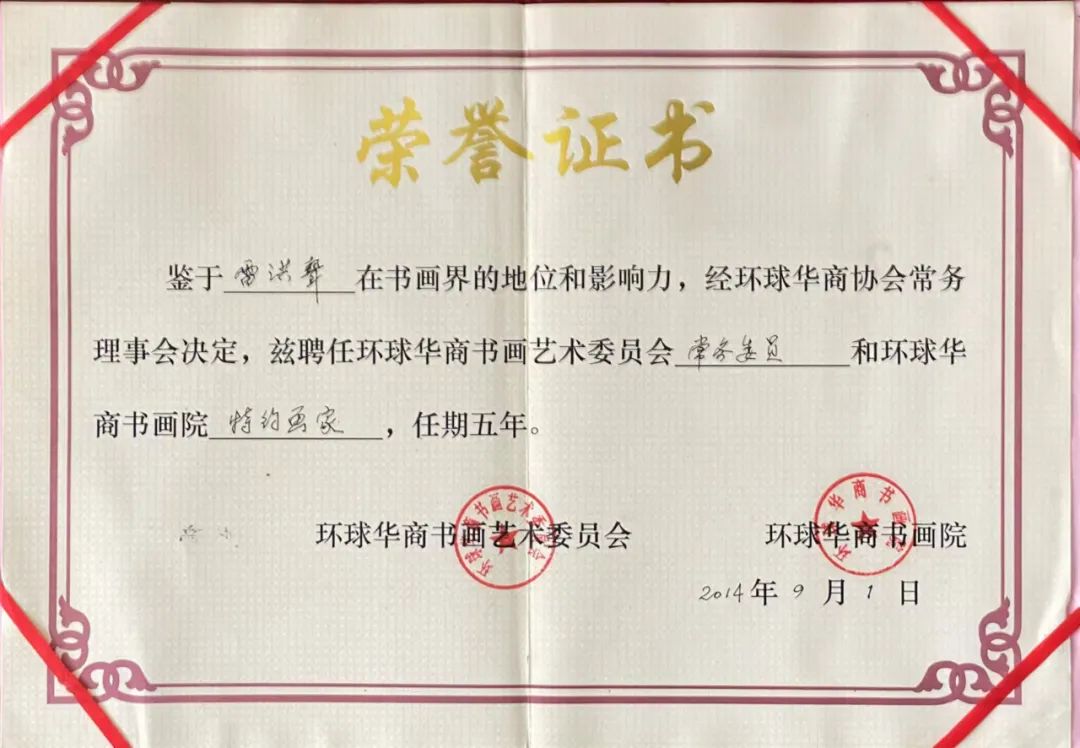 荣誉证书
鉴于雷洪声在书画界的地位和影响力，经环球华商协会常务
理事会决定，兹聘任环球华商书画艺术委员会常务委员和环球华
商书画院特约画家，任期五年。
环球华商书画艺术委员会 环球华商书画院
环球华商书画艺术委员会
环球华商书画院
2014年9月1日